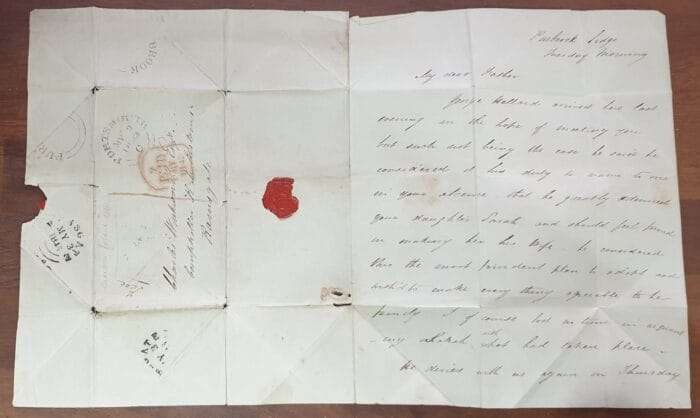 Purbrook Lodge
Tuesday Morning
My dear Father
George Hellard arrived here last
evening in the hope of meeting you
but such not being the case he said he
considered it his duty to name to me
in your absence that he greatly admired
your daughter Sarah and should feel proud
in making her his Wife - he considered
this the most prudent plan to adopt and
wish'd to make every thing agreeable to her
family I of course lost no time in
my Sarah with what had taken place -
He dines with us again on Thursday
PORTSMOUTH
PAID
Charles
Ramsgate
BROOK
PUR